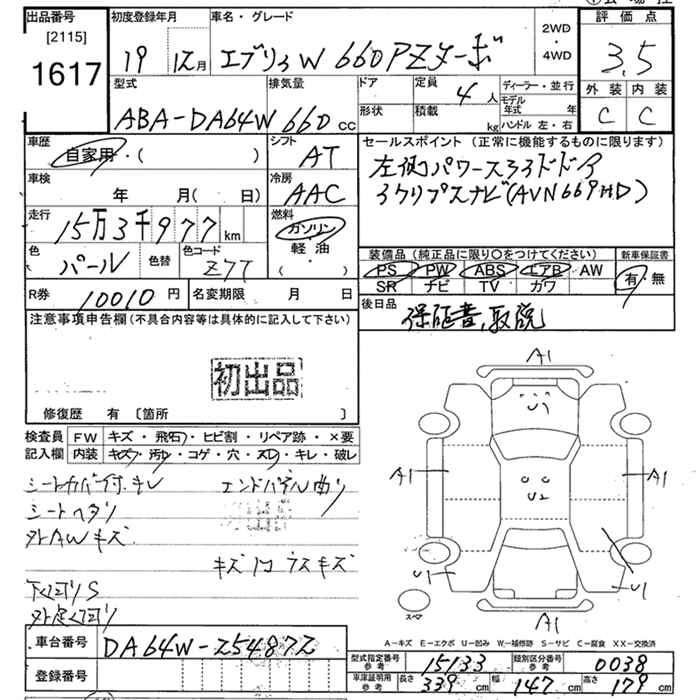 出品番号 [2115] 1617
初度登録年月 19 12月
車名・グレード エブリィW 660PZターボ
2WD・4WD
評価点 3.5
外装 C 内装 C
型式 ABA-DA64W
排気量 660 cc
ドア 形状
定員 4人
積載 kg
ディーラー・並行
モデル年式 年
ハンドル 左・右
車歴 自家用・( )
シフト AT
セールスポイント (正常に機能するものに限ります)
左側パワースライドドア
クリプスナビ(AVN669HD)
車検 年 月( 日)
冷房 AAC
走行 15万3千977km
燃料 ガソリン・軽油・( )
色 パール 色替 色コード Z7T
装備品 (純正品に限り○をつけてください)
PS PW ABS エアB AW
SR ナビ TV カワ
新車保証書 有・無
R券 10010円 名変期限 月 日
後日品 保証書、取説
注意事項申告欄 (不具合内容等は具体的に記入して下さい)
初出品
修復歴 有 [箇所 ]
検査員記入欄
FW キズ・飛石・ヒビ割・リペア跡・×要
内装 キズ・汚レ・コゲ・穴・スレ・キレ・破レ
シートカバー付・キレ エンドパネル曲り
シートヘタリ
外AWキズ
キズ凹 ラスキズ
下廻りS
外廻り
A1
A1 A1
U1 U1
A1
スペア
A-キズ E-エクボ U-凹み W-補修跡 S-サビ C-腐食 XX-交換済
車台番号 DA64W-254872
登録番号
型式指定番号 参考 15133 類別区分番号 参考 0038
車庫証明用 参考 長さ 339cm 幅 147cm 高さ 179cm